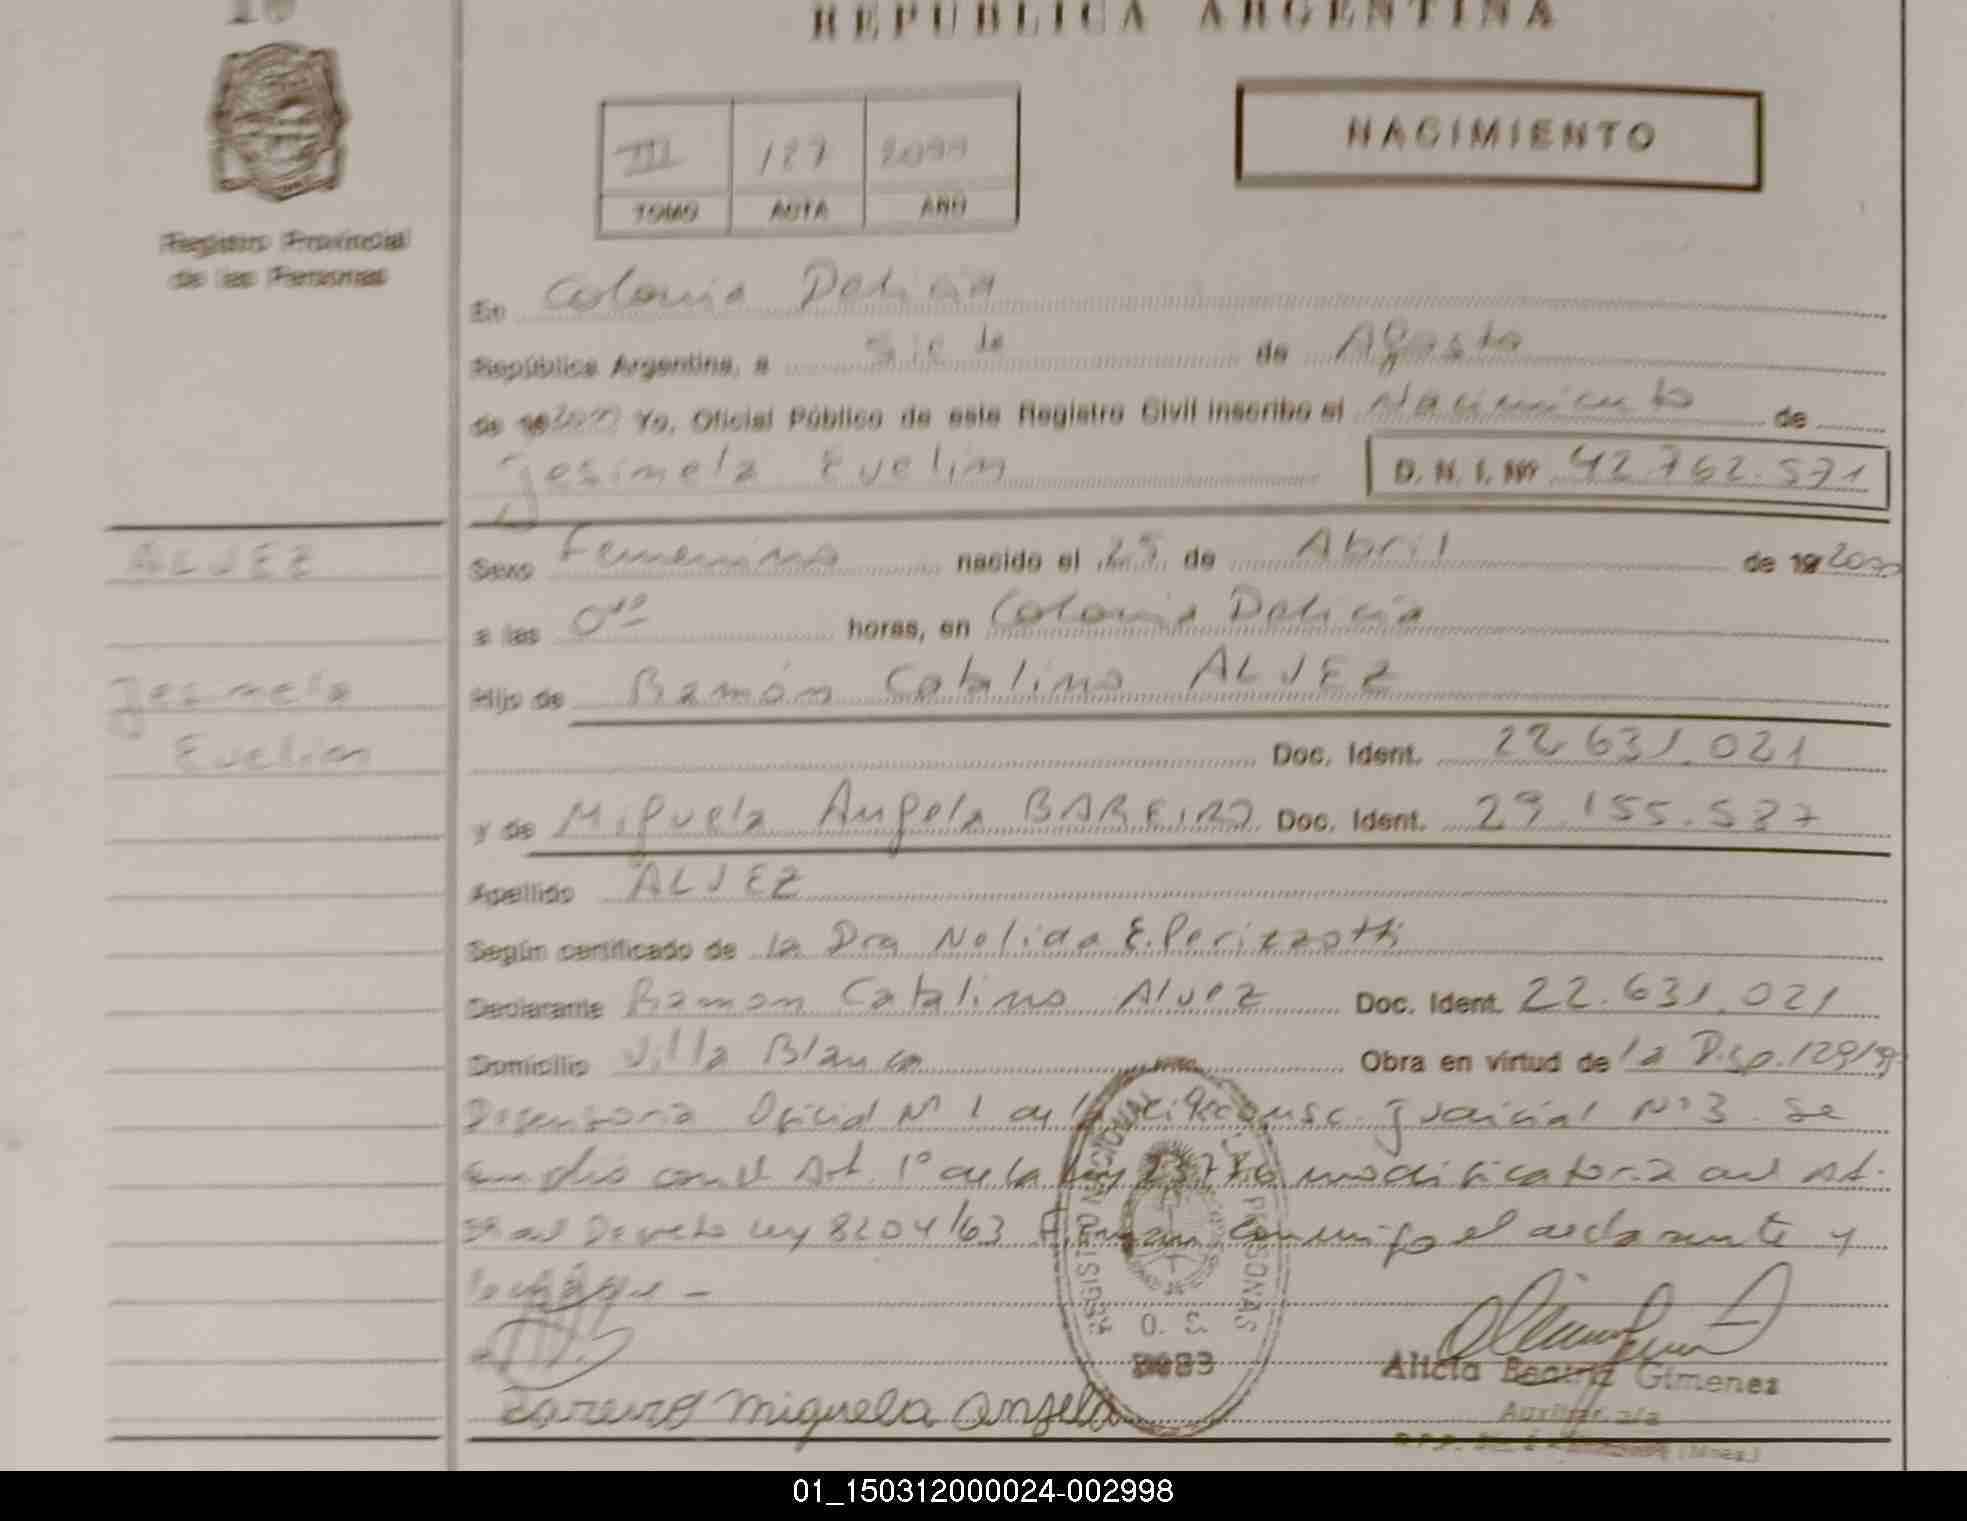 REPUBLICA ARGENTINA
NACIMIENTO
III 127
TOMO ACTA AÑO
Registro Provincial
de las Personas
En Colonia Delicia
República Argentina, a siete de Agosto
de 19 Yo, Oficial Público de este Registro Civil inscribo el Nacimiento de
Jesimela Evelin D. N. I. Nº 42.762.571
ALVEZ
Jesimela
Evelin
Sexo Femenino nacido el 25 de Abril de 19 2000
a las horas, en Colonia Delicia
Hijo de Ramón Catalino ALVEZ
Doc. Ident. 22.631.021
y de Miguela Angela BAREIRO Doc. Ident. 29.155.587
Apellido ALVEZ
Según certificado de la Dra Nelida E. Perizzotti
Declarante Ramon Catalino Alvez Doc. Ident. 22.631.021
Domicilio Villa Blanca Obra en virtud de la Disp. 129/99
Defensoria Oficial Nº 1 de la circunsc. Judicial Nº 3. Se
con el Art. 1º de la ley modificatoria del Art.
del Decreto ley 8204/63 Firman conmigo el declarante y
REGISTRO NACIONAL DE LAS PERSONAS
Alicia Beatriz Gimenez
Auxiliar a/a
Bareiro Miguela Angela
(Mnes.)
01_150312000024-002998